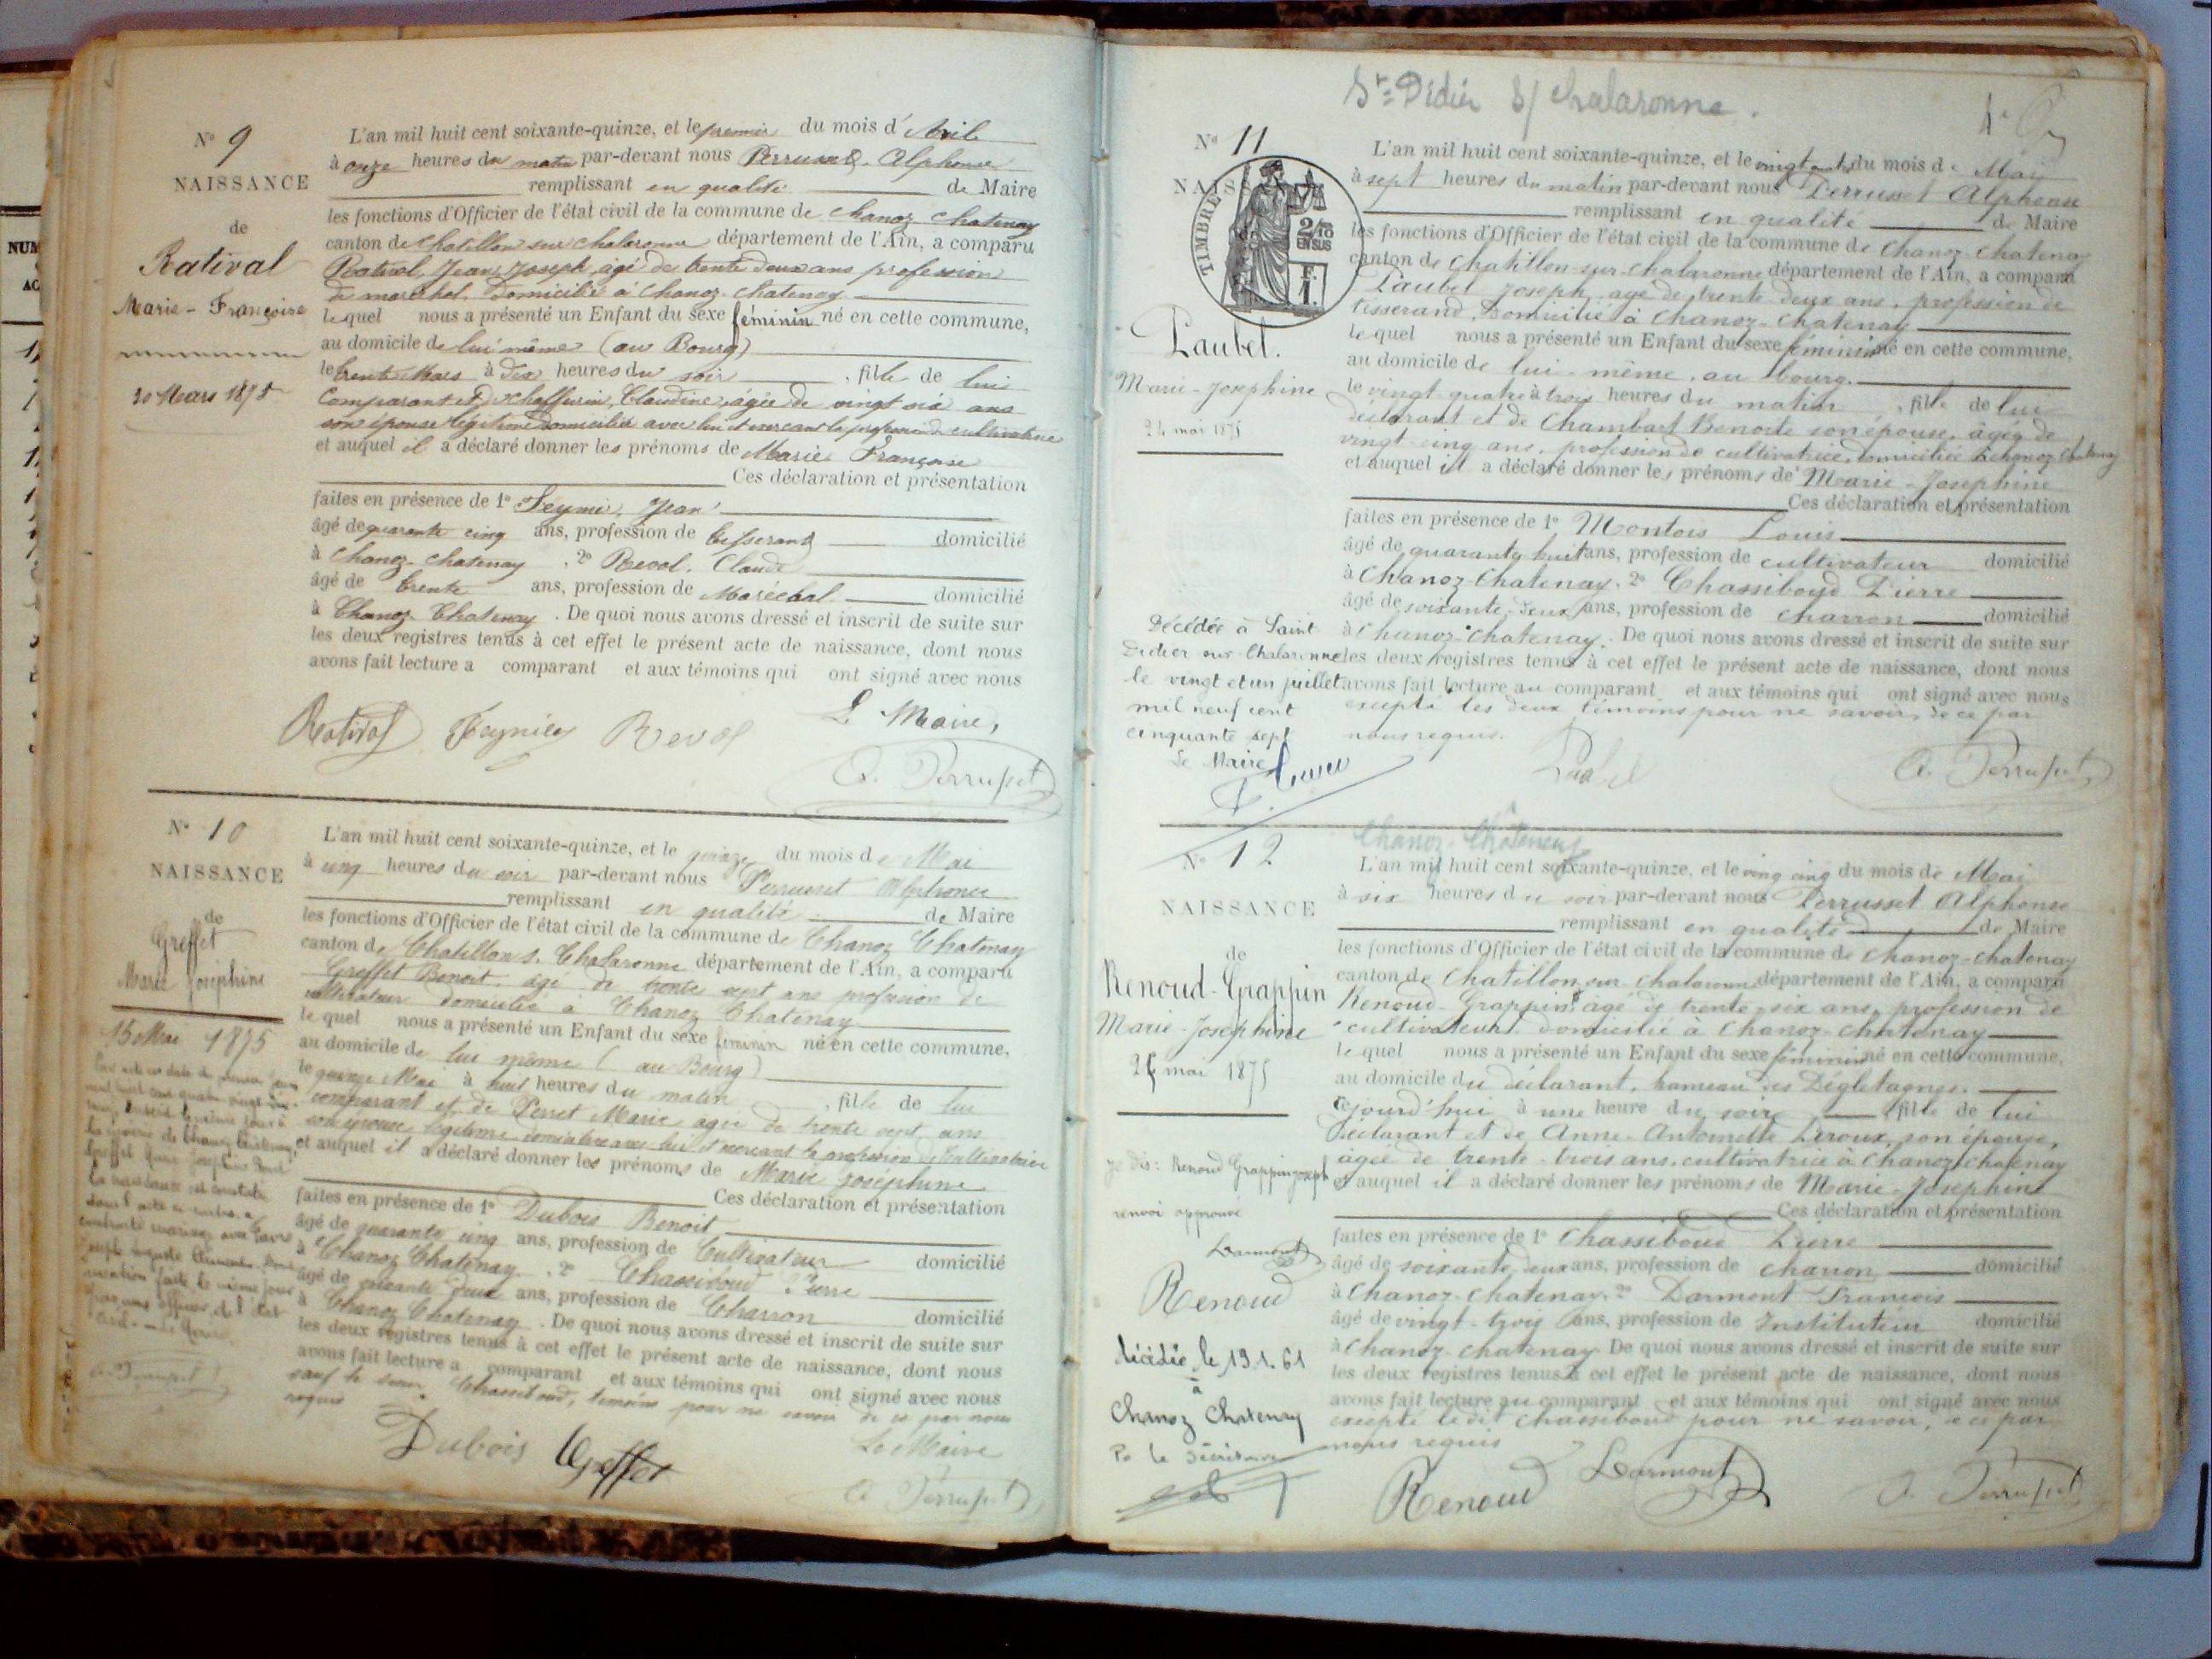 N° 9
NAISSANCE
de
Ratival
Marie-Françoise
30 Mars 1875
L'an mil huit cent soixante-quinze, et le premier du mois d'Avril
à onze heures du matin par-devant nous Perrusset Alphonse
remplissant en qualité de Maire
les fonctions d'Officier de l'état civil de la commune de Chanoz Chatenay
canton de Chatillon sur Chalaronne département de l'Ain, a comparu
Ratival, Jean Joseph, âgé de trente deux ans profession
de maréchal, Domicilié à Chanoz-Chatenay
lequel nous a présenté un Enfant du sexe féminin né en cette commune,
au domicile de lui même (au Bourg)
le trente Mars à dix heures du soir, fille de lui
comparant et de Claudine, âgée de vingt six ans
son épouse légitime domiciliée avec lui et exerçant la profession de cultivatrice
et auquel il a déclaré donner les prénoms de Marie Françoise
Ces déclaration et présentation
faites en présence de 1° Jean
âgé de quarante cinq ans, profession de tisserand domicilié
à Chanoz-Chatenay. 2° Revol, Claude
âgé de trente ans, profession de Maréchal domicilié
à Chanoz-Chatenay. De quoi nous avons dressé et inscrit de suite sur
les deux registres tenus à cet effet le présent acte de naissance, dont nous
avons fait lecture a comparant et aux témoins qui ont signé avec nous
Ratival Revol L. Maire,
A. Perrusset
N° 10
NAISSANCE
de
Greffet
Marie Joséphine
15 Mai 1875
L'an mil huit cent soixante-quinze, et le quinze du mois de Mai
à cinq heures du soir par-devant nous Perrusset Alphonse
remplissant en qualité de Maire
les fonctions d'Officier de l'état civil de la commune de Chanoz Chatenay
canton de Chatillon s. Chalaronne département de l'Ain, a comparu
Greffet Benoit, âgé de trente sept ans profession de
cultivateur domicilié à Chanoz Chatenay
lequel nous a présenté un Enfant du sexe féminin né en cette commune,
au domicile de lui même (au Bourg)
le quinze Mai à huit heures du matin, fille de lui
comparant et de Perret Marie agée de trente sept ans
son épouse légitime domiciliée avec lui et exerçant la profession de cultivatrice
et auquel il a déclaré donner les prénoms de Marie Joséphine
Ces déclaration et présentation
faites en présence de 1° Dubois Benoit
âgé de quarante cinq ans, profession de Cultivateur domicilié
à Chanoz Chatenay. 2° Chassiboud Pierre
âgé de soixante deux ans, profession de Charron domicilié
à Chanoz Chatenay. De quoi nous avons dressé et inscrit de suite sur
les deux registres tenus à cet effet le présent acte de naissance, dont nous
avons fait lecture a comparant et aux témoins qui ont signé avec nous
sauf le sieur Chassiboud, témoin pour ne savoir de ce par nous
requis
Dubois Greffet Le Maire
A. Perrusset
St Didier s/ Chalaronne.
N° 11
TIMBRE
2/10
EN SUS
F.
1.
Paubel.
Marie-Josephine
24 mai 1875
L'an mil huit cent soixante-quinze, et le vingt quatre du mois de Mai
à sept heures du matin par-devant nous Perrusset Alphonse
remplissant en qualité de Maire
les fonctions d'Officier de l'état civil de la commune de Chanoz-Chatenay
canton de Chatillon-sur-Chalaronne département de l'Ain, a comparu
Paubel Joseph, agé de trente-deux ans, profession de
tisserand, Domicilié à Chanoz-Chatenay
lequel nous a présenté un Enfant du sexe féminin né en cette commune,
au domicile de lui-même, au bourg.
le vingt-quatre à trois heures du matin, fille de lui
déclarant et de Chambard Benoite son épouse, âgée de
vingt-cinq ans, profession de cultivatrice, domiciliée à Chanoz-Chatenay
et auquel il a déclaré donner les prénoms de Marie-Josephine
Ces déclaration et présentation
faites en présence de 1° Montois Louis
âgé de quarante huit ans, profession de cultivateur domicilié
à Chanoz-Chatenay. 2° Chassiboud Pierre
âgé de soixante-deux ans, profession de charron domicilié
à Chanoz-Chatenay. De quoi nous avons dressé et inscrit de suite sur
les deux registres tenus à cet effet le présent acte de naissance, dont nous
avons fait lecture au comparant et aux témoins qui ont signé avec nous
excepté les deux témoins pour ne savoir, de ce par
nous requis.
A. Perrusset
Décédée à Saint
Didier sur Chalaronne
le vingt et un juillet
mil neuf cent
cinquante sept
Le Maire
Chanoz-Châtenay
N° 12
NAISSANCE
de
Renoud-Grappin
Marie-Josephine
25 mai 1875
L'an mil huit cent soixante-quinze, et le ving cinq du mois de Mai
à six heures du soir par-devant nous Perrusset Alphonse
remplissant en qualité de Maire
les fonctions d'Officier de l'état civil de la commune de Chanoz-Chatenay
canton de Chatillon-sur-Chalaronne département de l'Ain, a comparu
Renoud-Grappin, âgé de trente-six ans, profession de
cultivateur domicilié à Chanoz-Chatenay
lequel nous a présenté un Enfant du sexe féminin né en cette commune,
au domicile du déclarant, hameau des
cejourd'hui à une heure du soir, fille de lui
déclarant et de Anne-Antoinette Leroux, son épouse,
âgée de trente-trois ans, cultivatrice à Chanoz-Chatenay
et auquel il a déclaré donner les prénoms de Marie-Josephine
Ces déclaration et présentation
faites en présence de 1° Chassiboud Pierre
âgé de soixante-deux ans, profession de charron domicilié
à Chanoz-Chatenay. 2° Darmont François
âgé de vingt-trois ans, profession de Instituteur domicilié
à Chanoz-Chatenay. De quoi nous avons dressé et inscrit de suite sur
les deux registres tenus à cet effet le présent acte de naissance, dont nous
avons fait lecture au comparant et aux témoins qui ont signé avec nous
excepté ledit Chassiboud pour ne savoir, de ce par
nous requis
Renoud Darmont A. Perrusset
je dis: Renoud Grappin Joseph
renvoi approuvé
Darmont
Renoud
décédée le 19.1.61
à
Chanoz Chatenay